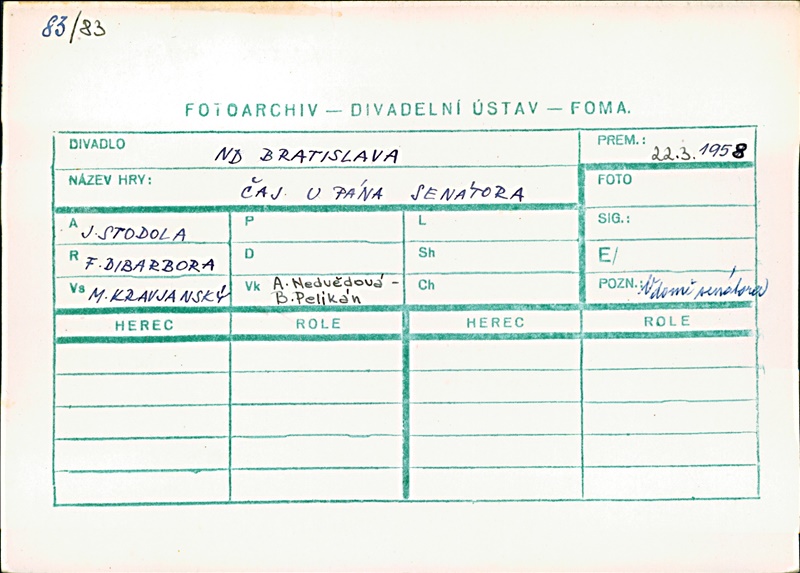 83/83
FOTOARCHIV — DIVADELNÍ ÚSTAV — FOMA.
DIVADLO ND BRATISLAVA
PREM.: 22.3.1958
NÁZEV HRY: ČAJ U PÁNA SENÁTORA
FOTO
A J. STODOLA
P
L
SIG.:
R F. DIBARBORA
D
Sh
E/
Vs M. KRAVJANSKÝ
Vk A. Nedvědová -
B. Pelikán
Ch
POZN.: V domě senátora
HEREC ROLE HEREC ROLE